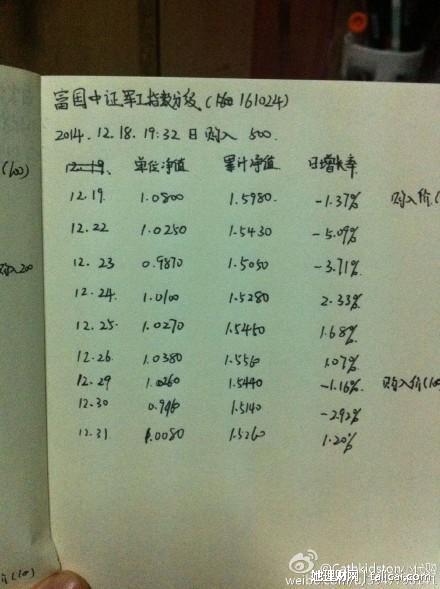 富国中证军工指数分级(161024)
2014.12.18.19:32日购入500.
12.19. 单位净值 累计净值 日增长率
(100)
12.19. 1.0800 1.5980. -1.37% 购入价.(
12.22 1.0250 1.5430 -5.09%
购入200
12.23 0.9870 1.5050 -3.71%
12.24. 1.0100 1.5280 2.33%
12.25. 1.0270 1.5450 1.68%
12.26. 1.0380 1.5560 1.07%
12.29 1.0260 1.5440 -1.16% 购入价(100
12.30 1.5140 -2.92%
12.31 1.0080 1.5260 1.20%
@Cathkidston
weibo.com/u/3947795141
她理财网 | talicai.com